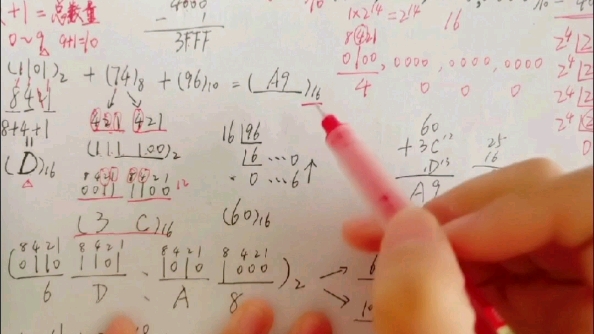 +1=总数量
0~9 9+1=10
4000
- 1
3FFF
1×2¹⁴=2¹⁴ 16
8421
0100,0000,0000,0000
4 0 0 0
(1101)₂ + (74)₈ + (96)₁₀ = (A9)₁₆
841
8+4+1
=
(D)₁₆
421 421
(111 100)₂
8421 8421
0011 1100 12
(3 C)₁₆
16 96
16 ...0
0 ...6
(60)₁₆
60
+ 3C¹²
D¹³
A9
25
16
2⁴
2⁴
2⁴
2⁴
0
8421 8421 8421 8421
(0110 1101 . 1010 1000)₂
6 D . A 8
6
10